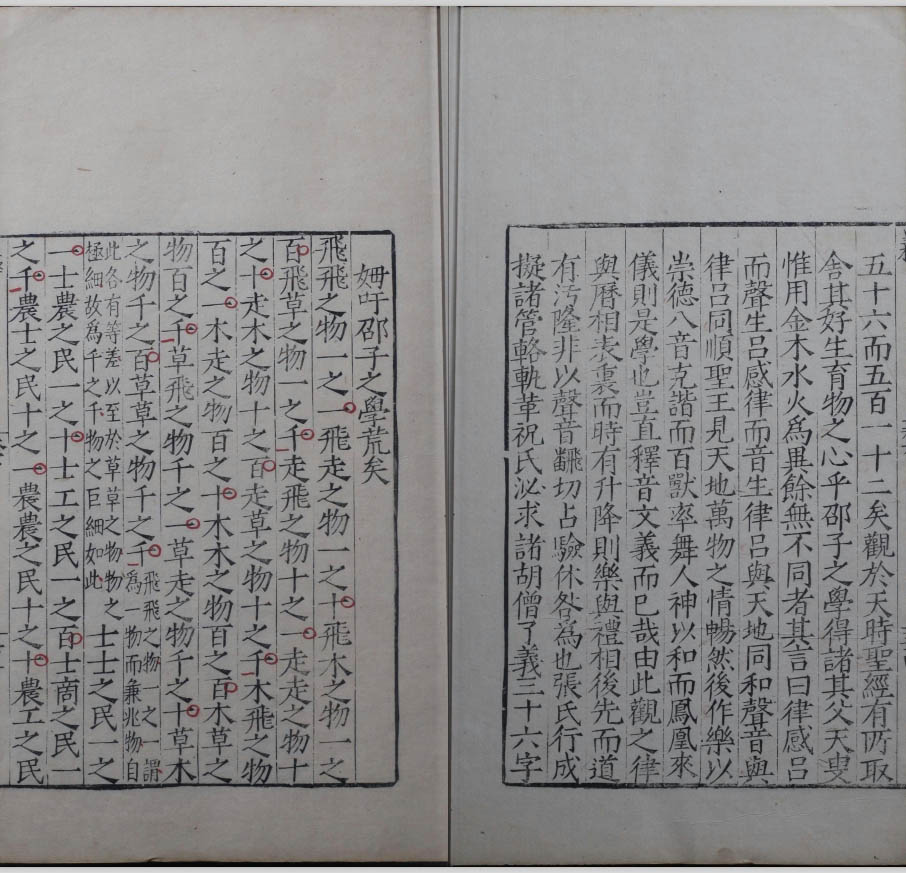 五十六而五百一十二矣觀於天時聖經有所取
舍其好生育物之心乎邵子之學得諸其父天叟
惟用金木水火爲異餘無不同者其言曰律感呂
而聲生呂感律而音生律呂與天地同和聲音與
律呂同順聖王見天地萬物之情暢然後作樂以
崇德八音克諧而百獸率舞人神以和而鳳凰來
儀則是學也豈直釋音文義而已哉由此觀之律
與曆相表裏而時有升降則樂與禮相後先而道
有汚隆非以聲音翻切占驗休咎爲也張氏行成
擬諸管輅軌革祝氏泌求諸胡僧了義三十六字
姆吁邵子之學荒矣
飛飛之物一之一飛走之物一之十飛木之物一之
百飛草之物一之千走飛之物十之一走走之物十
之十走木之物十之百走草之物十之千木飛之物
百之一木走之物百之十木木之物百之百木草之
物百之千草飛之物千之一草走之物千之十草木
之物千之百草草之物千之千飛飛之物一之一謂
爲一物而兼兆物自
此各有等差以至於草草之物物之
極細故爲千之千物之巨細如此士士之民一之
一士農之民一之十士工之民一之百士商之民一
之千農士之民十之一農農之民十之十農工之民